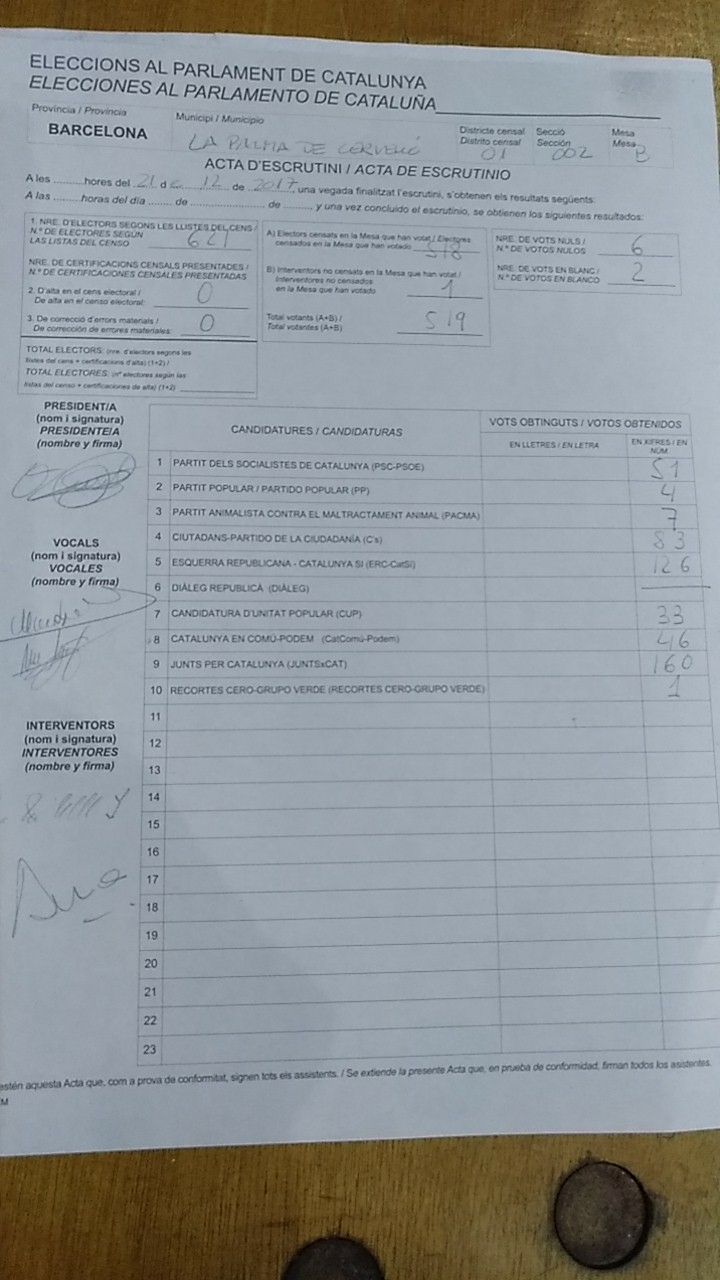 ELECCIONS AL PARLAMENT DE CATALUNYA
ELECCIONES AL PARLAMENTO DE CATALUÑA
Província / Provincia
BARCELONA
Municipi / Municipio
LA PALMA DE CERVELLÓ
Districte censal
Distrito censal
01
Secció
Sección
002
Mesa
Mesa
B
ACTA D'ESCRUTINI / ACTA DE ESCRUTINIO
A les ..........hores del 21 d e 12 de 2017, una vegada finalitzat l'escrutini, s'obtenen els resultats següents:
A las ..........horas del día ........ de .................... de ........, y una vez concluido el escrutinio, se obtienen los siguientes resultados:
1. NRE. D'ELECTORS SEGONS LES LLISTES DEL CENS /
N.º DE ELECTORES SEGÚN
LAS LISTAS DEL CENSO 621
NRE. DE CERTIFICACIONS CENSALS PRESENTADES /
N.º DE CERTIFICACIONES CENSALES PRESENTADAS
2. D'alta en el cens electoral /
De alta en el censo electoral: 0
3. De correcció d'errors materials /
De corrección de errores materiales: 0
TOTAL ELECTORS: (nre. d'electors segons les
llistes del cens + certificacions d'alta) (1+2) /
TOTAL ELECTORES: (nº electores según las
listas del censo + certificaciones de alta) (1+2)
A) Electors censats en la Mesa que han votat / Electores
censados en la Mesa que han votado 518
B) Interventors no censats en la Mesa que han votat /
Interventores no censados
en la Mesa que han votado 1
Total votants (A+B) /
Total votantes (A+B) 519
NRE. DE VOTS NULS /
N.º DE VOTOS NULOS 6
NRE. DE VOTS EN BLANC /
N.º DE VOTOS EN BLANCO 2
PRESIDENT/A
(nom i signatura)
PRESIDENTE/A
(nombre y firma)
VOCALS
(nom i signatura)
VOCALES
(nombre y firma)
INTERVENTORS
(nom i signatura)
INTERVENTORES
(nombre y firma)
CANDIDATURES / CANDIDATURAS
VOTS OBTINGUTS / VOTOS OBTENIDOS
EN LLETRES / EN LETRA
EN XIFRES / EN NÚM.
1 PARTIT DELS SOCIALISTES DE CATALUNYA (PSC-PSOE) 51
2 PARTIT POPULAR / PARTIDO POPULAR (PP) 4
3 PARTIT ANIMALISTA CONTRA EL MALTRACTAMENT ANIMAL (PACMA) 7
4 CIUTADANS-PARTIDO DE LA CIUDADANÍA (C's) 83
5 ESQUERRA REPUBLICANA - CATALUNYA SÍ (ERC-CatSí) 126
6 DIÀLEG REPUBLICÀ (DIÀLEG)
7 CANDIDATURA D'UNITAT POPULAR (CUP) 33
8 CATALUNYA EN COMÚ-PODEM (CatComú-Podem) 46
9 JUNTS PER CATALUNYA (JUNTSxCAT) 160
10 RECORTES CERO-GRUPO VERDE (RECORTES CERO-GRUPO VERDE) 1
11
12
13
14
15
16
17
18
19
20
21
22
23
estén aquesta Acta que, com a prova de conformitat, signen tots els assistents. / Se extiende la presente Acta que, en prueba de conformidad, firman todos los asistentes.
M